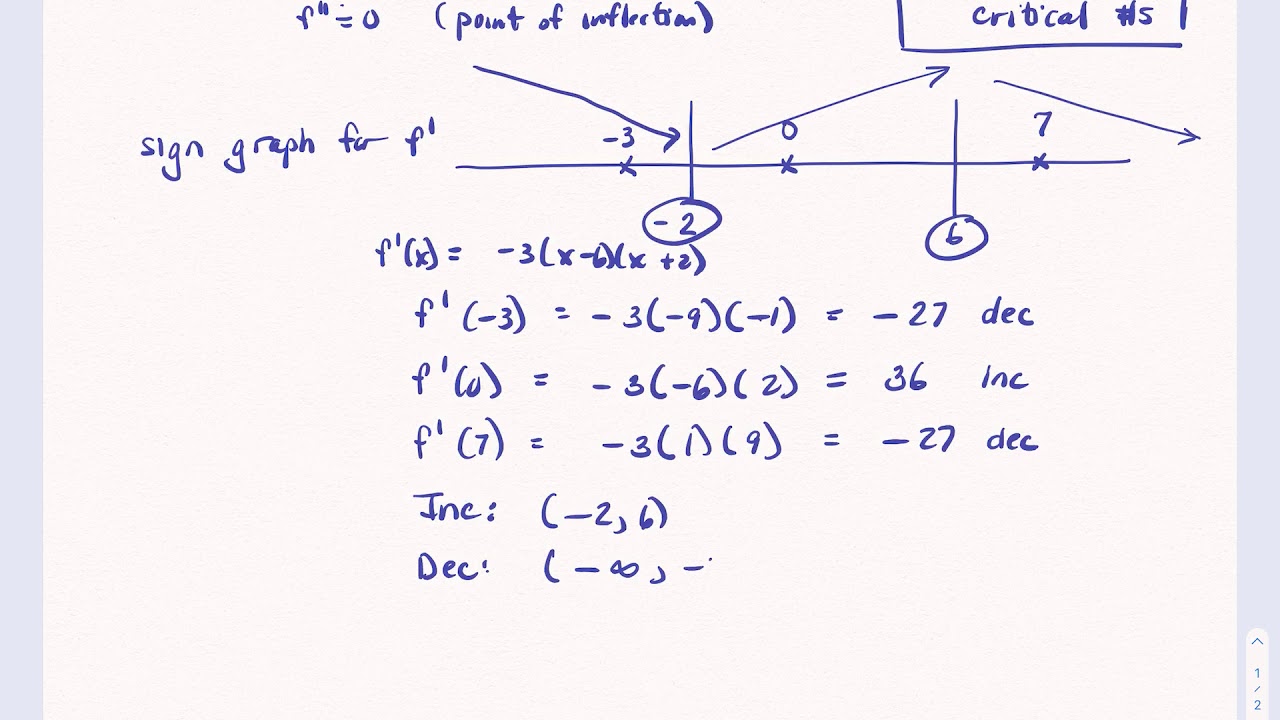 f''=0 (point of inflection)
critical #s
sign graph for f'
-3 0 7
-2 6
f'(x) = -3(x-6)(x+2)
f'(-3) = -3(-9)(-1) = -27 dec
f'(0) = -3(-6)(2) = 36 inc
f'(7) = -3(1)(9) = -27 dec
Inc: (-2, 6)
Dec: (-∞, -
1
/
2